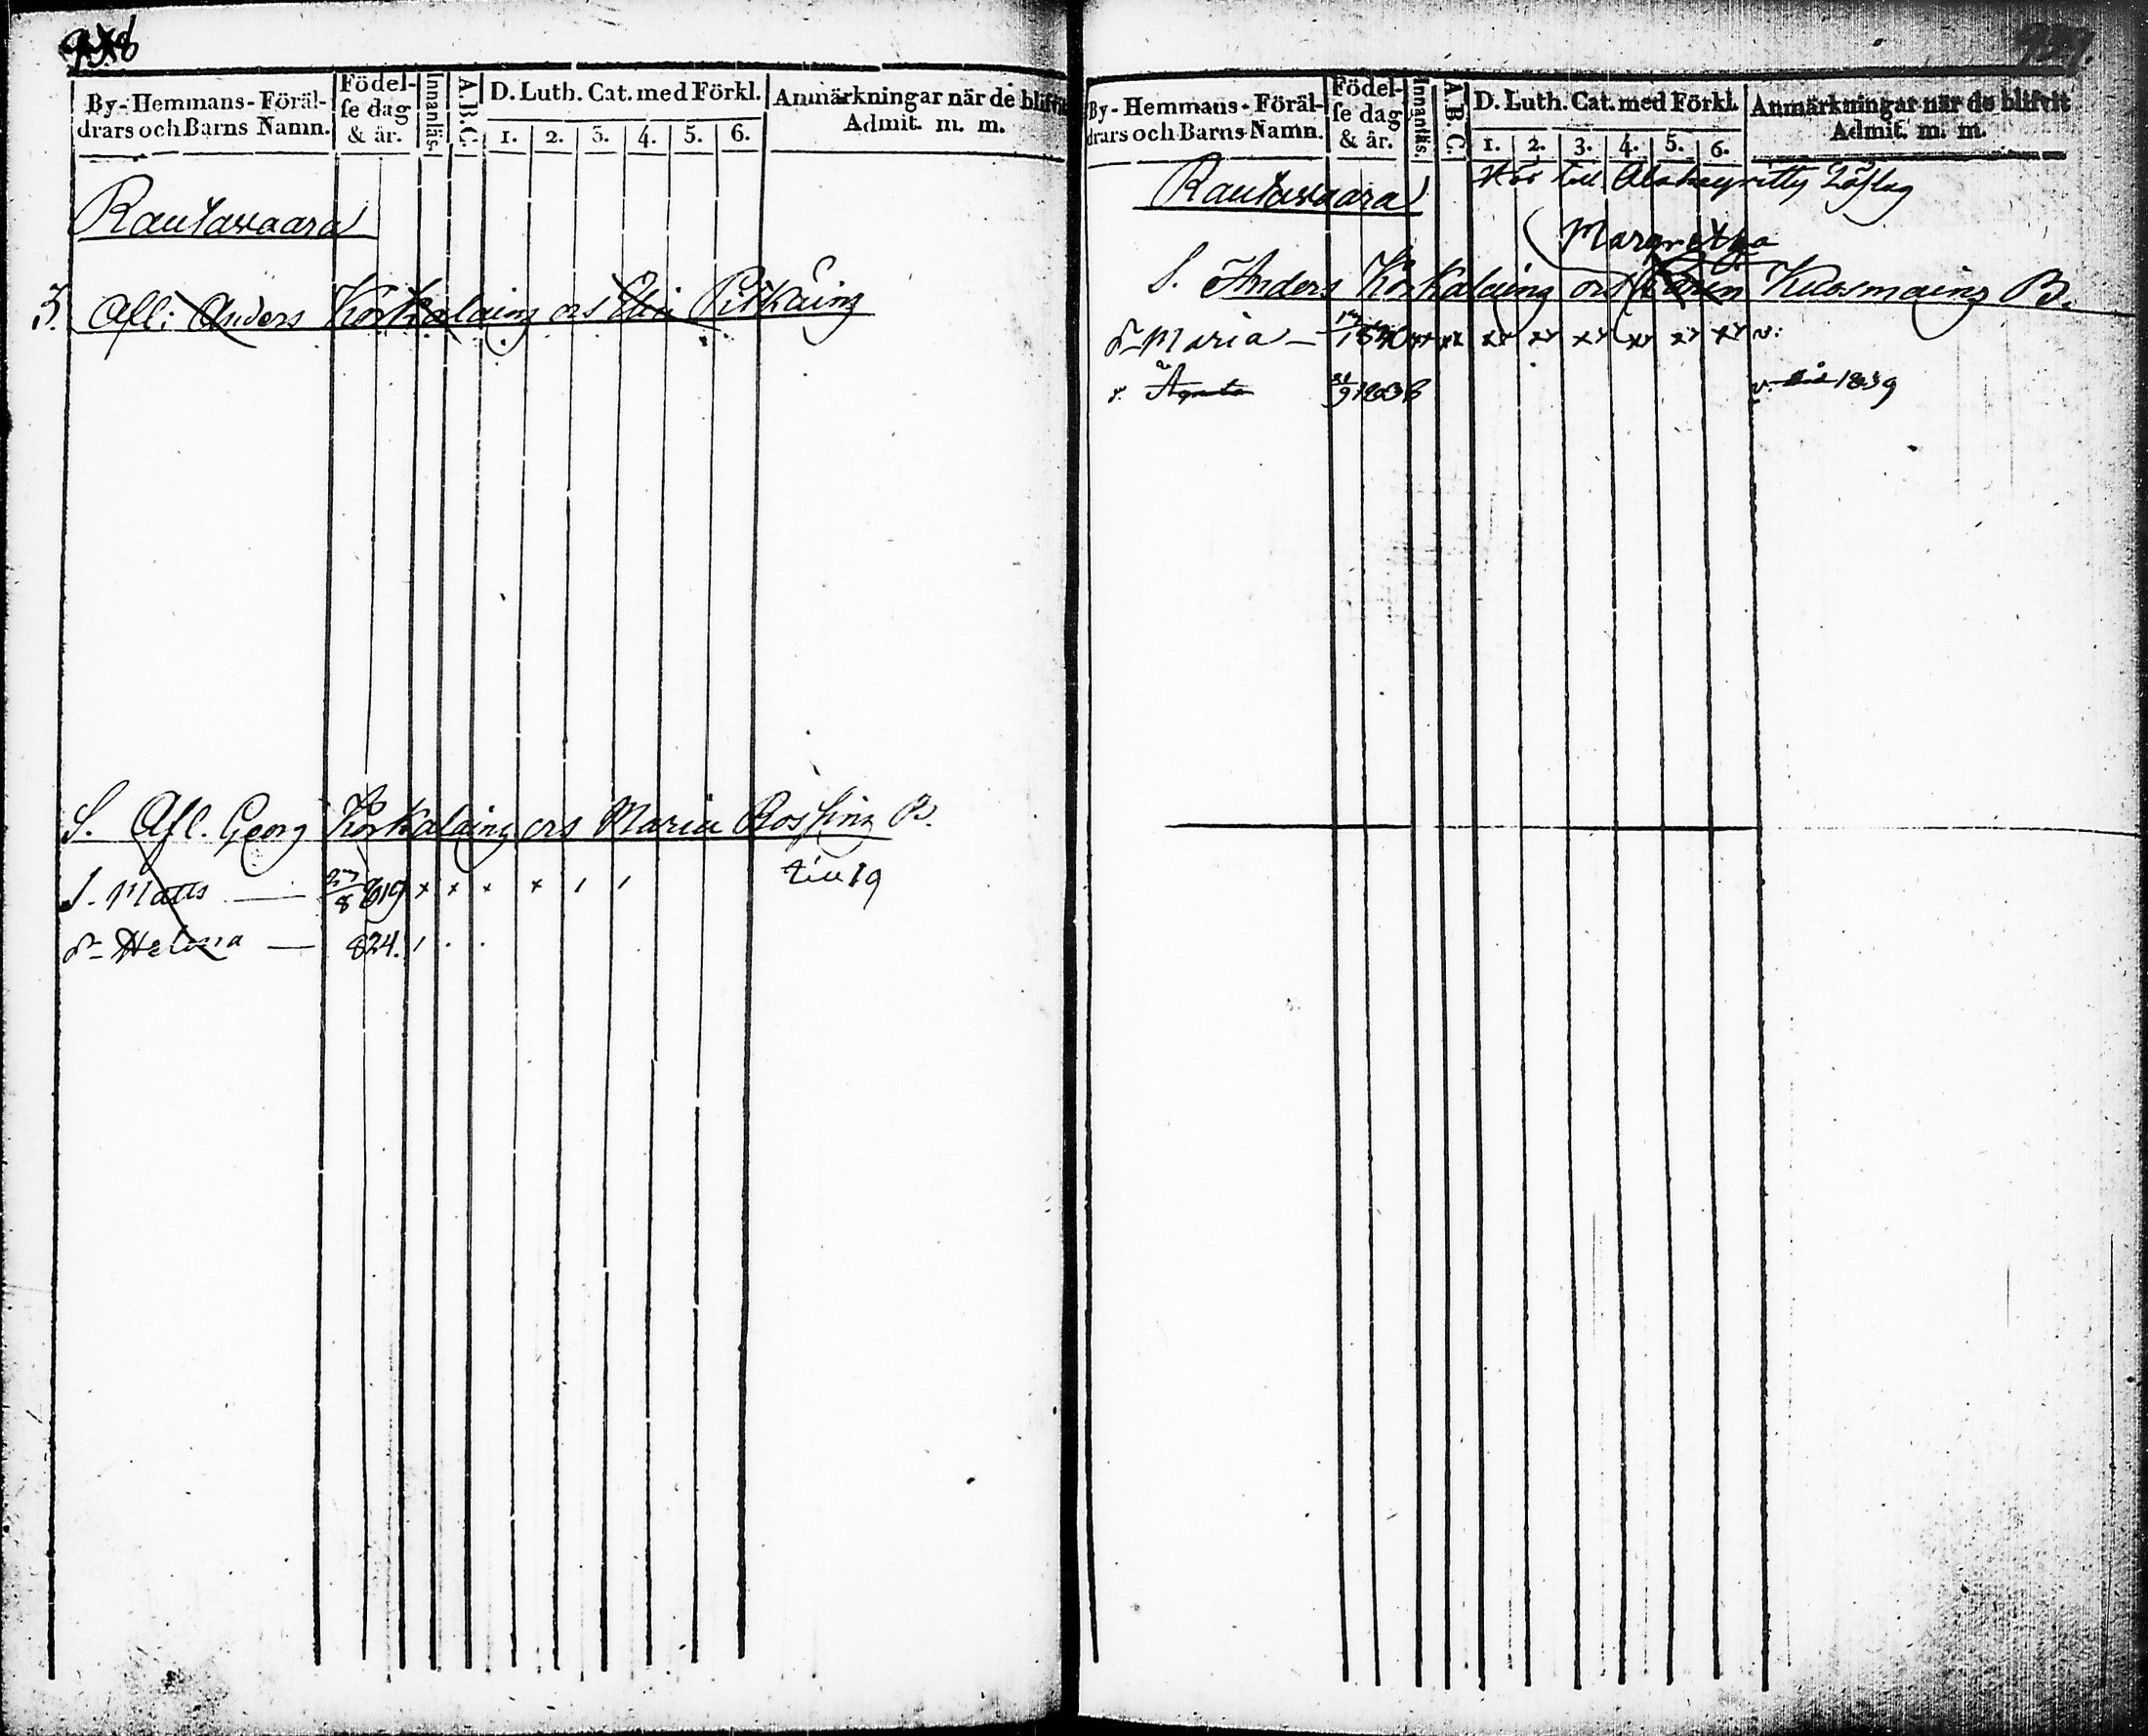 By-Hemmans-Föräl-
drars och Barns Namn.
Födel-
se dag
& år.
Innanläs.
A.B.C.
D. Luth. Cat. med Förkl.
1. 2. 3. 4. 5. 6.
Anmärkningar när de blifvit
Admit. m. m.
Rautawaara
3. Afl: Anders Korkalaing ors Elin Pitkäing
S. Afl. Georg Korkalaing ors Maria Rossing B.
S. Matts — 27/8 819 × × × × / / till 19
dr Helena — 824. /
By-Hemmans-Föräl-
drars och Barns Namn.
Födel-
se dag
& år.
Innanläs.
A.B.C.
D. Luth. Cat. med Förkl.
1. 2. 3. 4. 5. 6.
Anmärkningar när de blifvit
Admit. m. m.
Rautawaara
Hör till
Margretha
S. Anders Korkalaing ors Karin Kuosmaing B.
dr Maria — 1840 v.
d. Agneta 1836 v. 1839